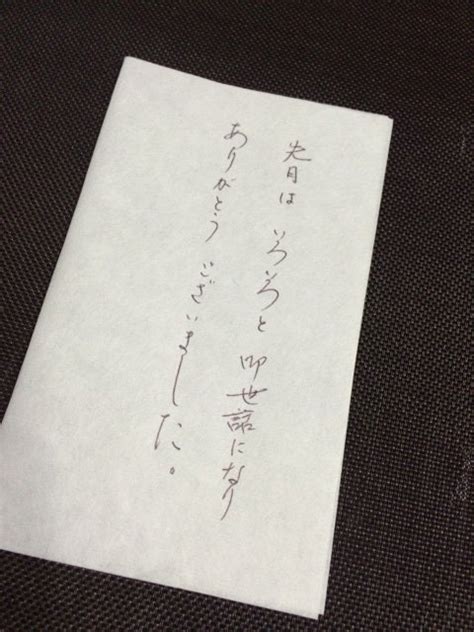 先日は いろいろと 御世話になり
ありがとう ございました。